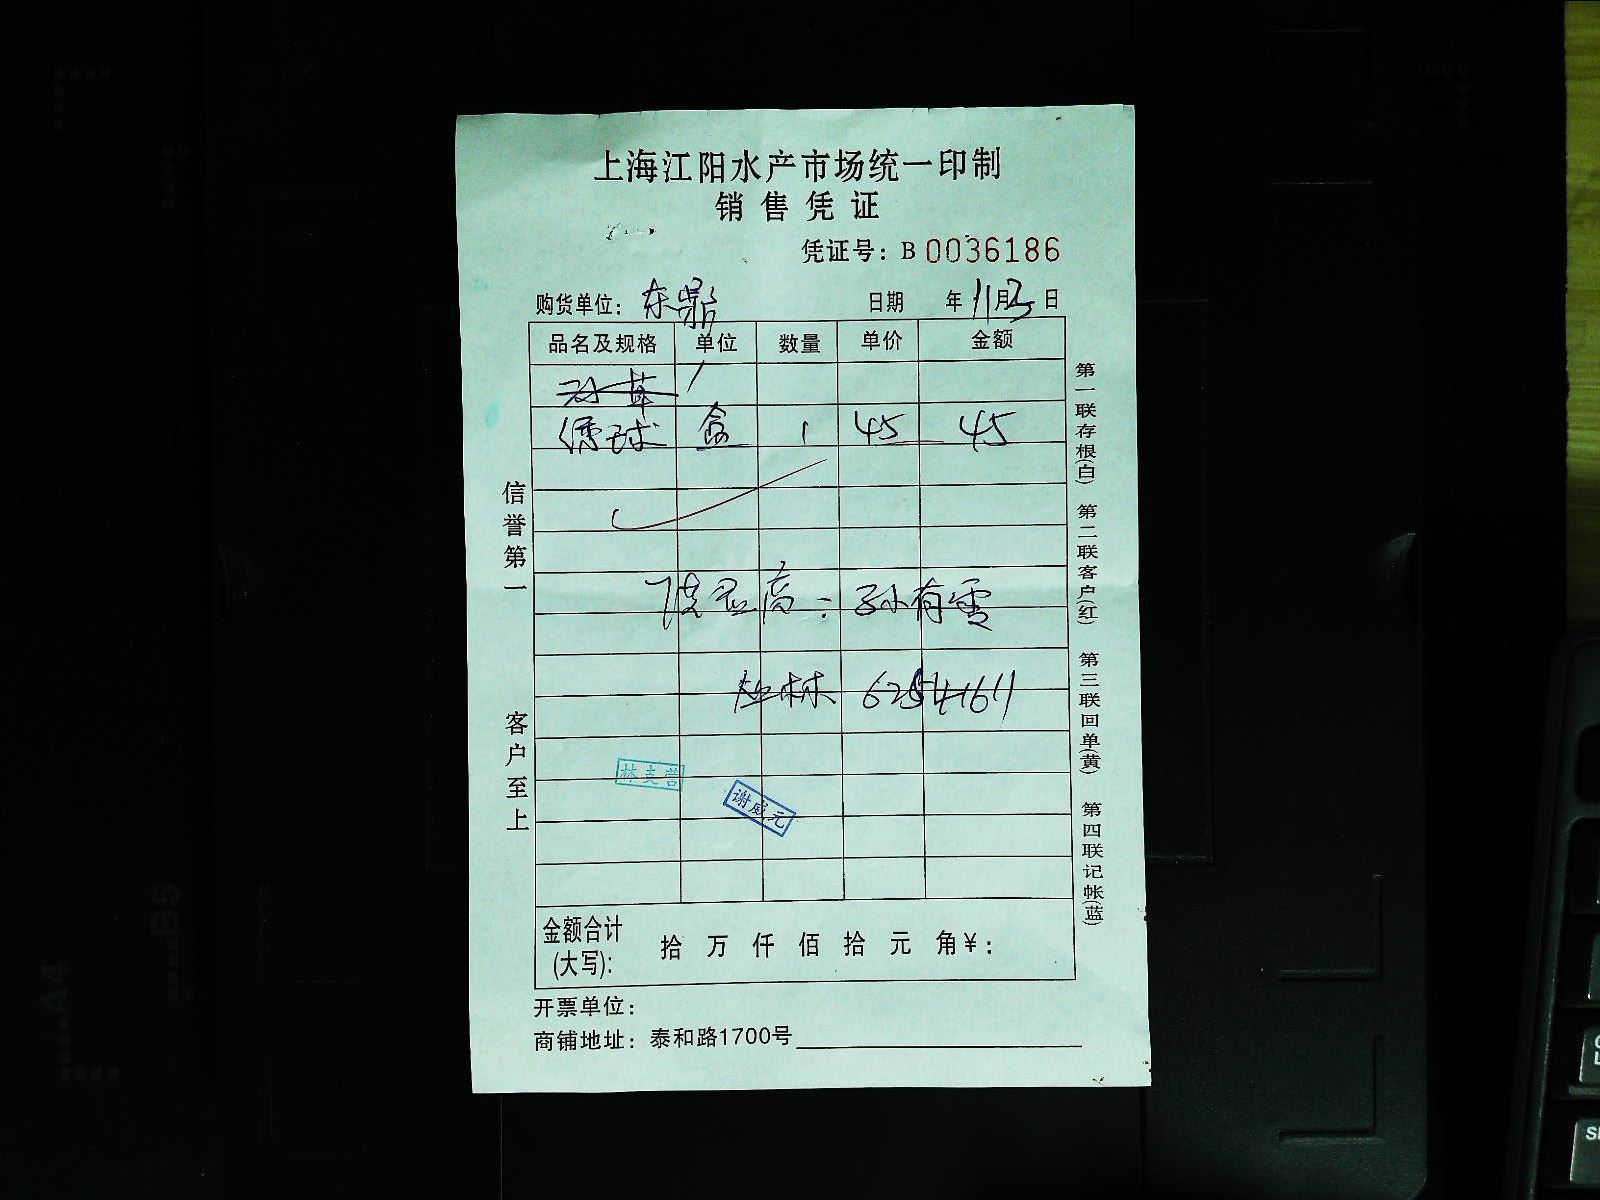 上海江阳水产市场统一印制
销售凭证
凭证号：B 0036186
购货单位：东鼎 日期 年 11月 日
品名及规格 单位 数量 单价 金额
球 盒 1 45 45
供应商：孙有雷
林 6254161
林支营
谢威元
金额合计
(大写)： 拾 万 仟 佰 拾 元 角￥：
开票单位：
商铺地址：泰和路1700号
信誉第一 客户至上
第一联存根(白) 第二联客户(红) 第三联回单(黄) 第四联记帐(蓝)
B5
A4